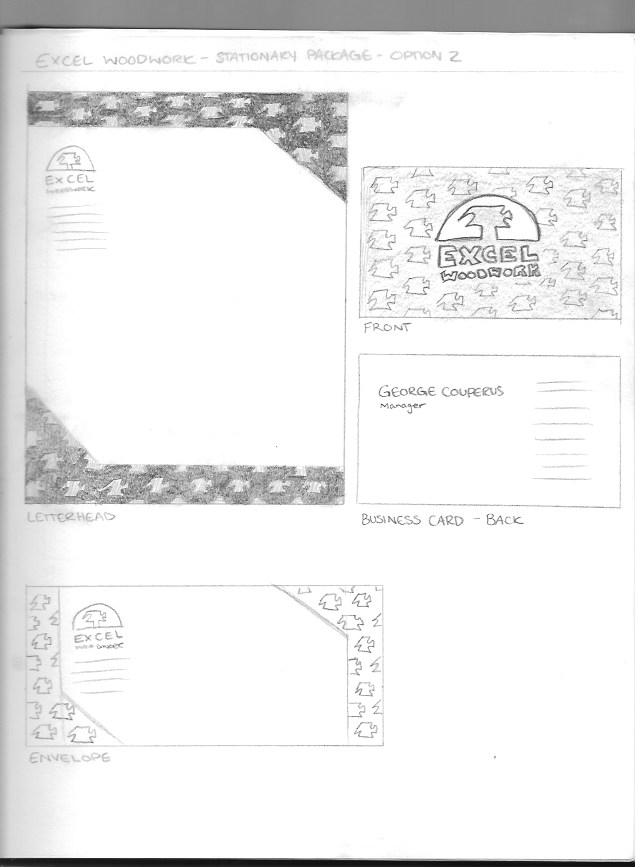 EXCEL WOODWORK - STATIONARY PACKAGE - OPTION 2
EXCEL
WOODWORK
LETTERHEAD
EXCEL
WOODWORK
FRONT
GEORGE COUPERUS
Manager
BUSINESS CARD - BACK
EXCEL
WOODWORK
ENVELOPE